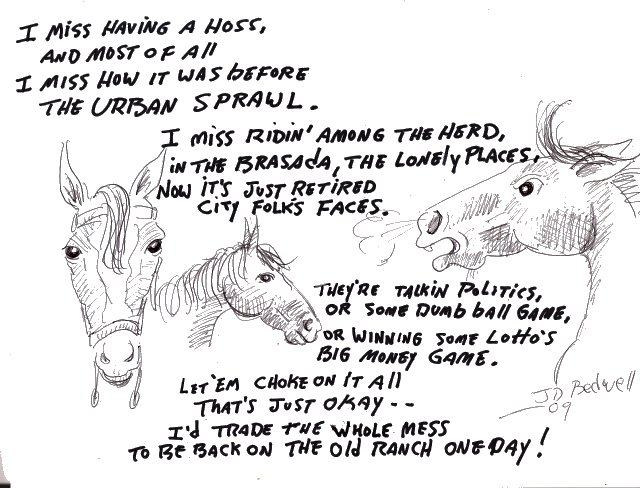 I MISS HAVING A HOSS,
AND MOST OF All
I MISS HOW IT WAS bEFORE
THE URBAN SPRAWL.
I MISS RIDIN' AMONG THE HERD,
IN THE BRASADA, THE LONELY PLACES,
NOW IT'S JUST RETIRED
CITY FOLK'S FACES.
THEY'RE TALKIN POLITICS,
OR SOME DUMB bAll GAME,
OR WINNING SOME LOTTO'S
BIG MONEY GAME.
LET 'EM CHOKE ON IT All
THAT'S JUST OKAY--
I'd TRADE THE WHOLE MESS
TO BE BACK ON THE Old RANCH ONE DAY!
JD Bedwell
09